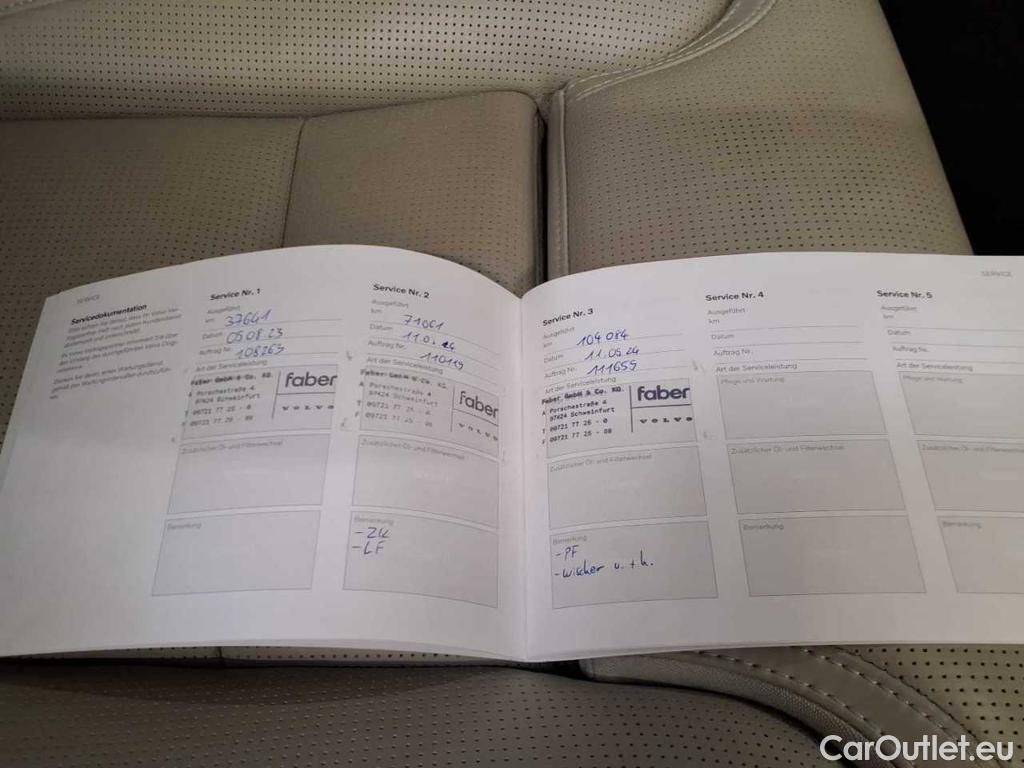 SERVICE
Servicedokumentation
Service Nr. 1
Ausgeführt
km 37641
Datum 05 08 23
Auftrag Nr. 108263
Art der Serviceleistung
Faber GmbH & Co. KG.
A Porschestraße 4
97424 Schweinfurt
T 09721 77 25 - 0
F 09721 77 25 - 88
faber
VOLVO
Zusätzlicher Öl- und Filterwechsel
Bemerkung
Service Nr. 2
Ausgeführt
km 71061
Datum
Auftrag Nr. 110119
Art der Serviceleistung
Faber GmbH & Co. KG.
A Porschestraße 4
97424 Schweinfurt
T 09721 77 25 - 0
F 09721 77 25 - 88
faber
VOLVO
Zusätzlicher Öl- und Filterwechsel
Bemerkung
- ZK
- LF
SERVICE
Service Nr. 3
Ausgeführt
km 104 084
Datum
Auftrag Nr. 111659
Art der Serviceleistung
Faber GmbH & Co. KG.
A Porschestraße 4
97424 Schweinfurt
T 09721 77 25 - 0
F 09721 77 25 - 88
faber
VOLVO
Zusätzlicher Öl- und Filterwechsel
Bemerkung
- PF
- wischer v. + h.
Service Nr. 4
Ausgeführt
km
Datum
Auftrag Nr.
Art der Serviceleistung
Pflege und Wartung
Zusätzlicher Öl- und Filterwechsel
Bemerkung
Service Nr. 5
Ausgeführt
km
Datum
Auftrag Nr.
Art der Serviceleistung
Pflege und Wartung
Zusätzlicher Öl- und Filterwechsel
Bemerkung
CarOutlet.eu